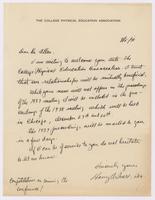 THE COLLEGE PHYSICAL EDUCATION ASSOCIATION
Dear Dr. Allen:
I am writing to welcome you into the
College Physical Education Association. I trust
that our relationships will be mutually beneficial.
While your name will not appear in the proceedings
of the 1937 meeting it will be included in the pro-
ceedings of the 1938 meeting which will be held
in Chicago, December
The 1937 proceedings will be mailed to you
in a few days.
If I can be of service to you do not hesitate
to let me know.
Sincerely yours
Harry
Congratulations on winning the
conference!